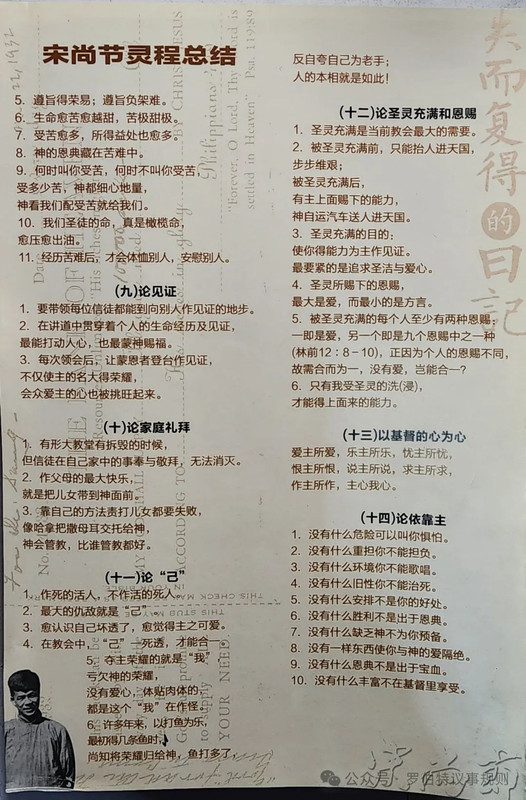 宋尚节灵程总结
5. 遵旨得荣易；遵旨负架难。
6. 生命愈苦愈越甜，苦极甜极。
7. 受苦愈多，所得益处也愈多。
8. 神的恩典藏在苦难中。
9. 何时叫你受苦，何时不叫你受苦，
受多少苦，神都细心地量，
神看我们配受苦就给我们。
10. 我们圣徒的命，真是橄榄命，
愈压愈出油。
11. 经历苦难后，才会体恤别人，安慰别人。
(九)论见证
1. 要带领每位信徒都能到向别人作见证的地步。
2. 在讲道中贯穿着个人的生命经历及见证，
最能打动人心，也最蒙神赐福。
3. 每次领会后、让蒙恩者登台作见证，
不仅使主的名大得荣耀，
会众爱主的心也被挑旺起来。
(十)论家庭礼拜
1. 有形大教堂有拆毁的时候，
但信徒在自己家中的事奉与敬拜，无法消灭。
2. 作父母的最大快乐，
就是把儿女带到神面前。
3. 靠自己的方法责打儿女都要失败，
像哈拿把撒母耳交托给神，
神会管教，比谁管教都好。
(十一)论“己”
1. 作死的活人，不作活的死人。
2. 最大的仇敌就是“己”。
3. 愈认识自己坏透了，愈觉得主之可爱。
4. 在教会中，“己”一死透，才能合一。
5. 夺主荣耀的就是“我”，
亏欠神的荣耀，
没有爱心，体贴肉体的
都是这个“我”在作怪。
6. 许多年来，以打鱼为乐，
最初得几条鱼时，
尚知将荣耀归给神，鱼打多了，
反自夸自己为老手；
人的本相就是如此！
(十二)论圣灵充满和恩赐
1. 圣灵充满是当前教会最大的需要。
2. 被圣灵充满前，只能抬人进天国，
步步维艰；
被圣灵充满后，
有主上面赐下的能力，
神自运汽车送人进天国。
3. 圣灵充满的目的：
使你得能力为主作见证。
最要紧的是追求圣洁与爱心。
4. 圣灵所赐下的恩赐，
最大是爱，而最小的是方言。
5. 被圣灵充满的每个人至少有两种恩赐：
一即是爱，另一个即是九个恩赐中之一种
(林前12：8－10)，正因为个人的恩赐不同，
故需合而为一，没有爱，岂能合一？
6. 只有我受圣灵的洗(浸)，
才能得上面来的能力。
(十三)以基督的心为心
爱主所爱，乐主所乐、忧主所忧，
恨主所恨，说主所说，求主所求，
作主所作，主心我心。
(十四)论依靠主
1. 没有什么危险可以叫你惧怕。
2. 没有什么重担你不能担负。
3. 没有什么环境你不能歌唱。
4. 没有什么旧性你不能治死。
5. 没有什么安排不是你的好处。
6. 没有什么胜利不是出于恩典。
7. 没有什么缺乏神不为你预备。
8. 没有一样东西使你与神的爱隔绝。
9. 没有什么恩典不是出于宝血。
10. 没有什么丰富不在基督里享受。
失而复得的日记
Philippians
"Forever, O Lord, Thy Word is
settled in Heaven" Psa. 119:89
BY CHRIST JESUS
ACCORDING TO
THIS CHECK MA
THIS STUB MA
to supply
YOUR NEED
公众号：罗伯特议事规则